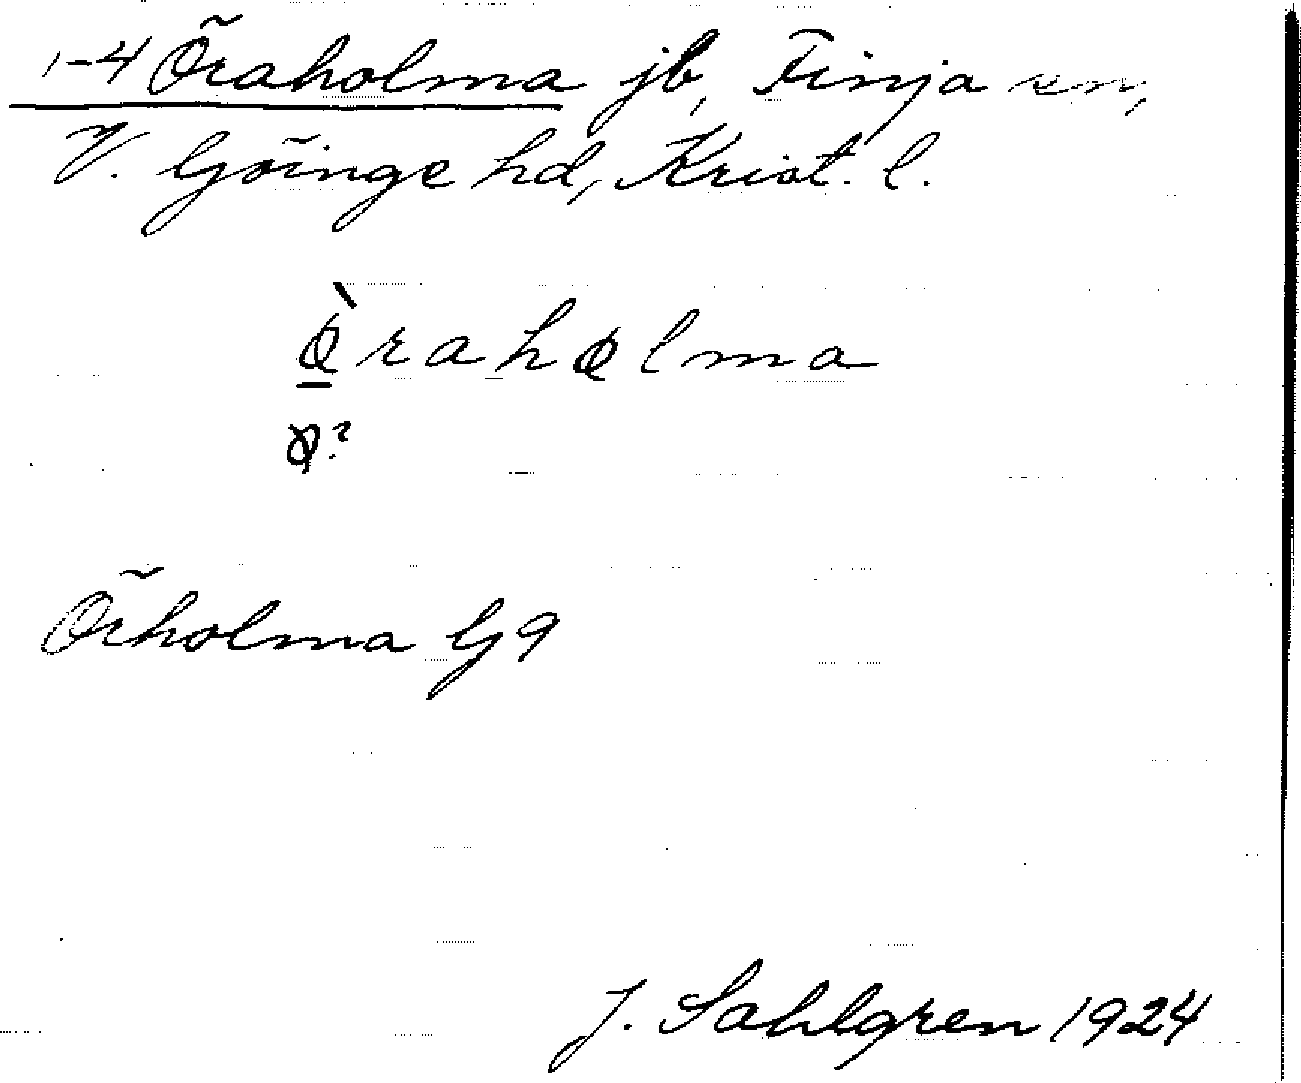 1-4 Öraholma jb, Finja sn,
V. Göinge hd, Krist. l.
ø̀rahølma
ø?
Örholma G9
J. Sahlgren 1924